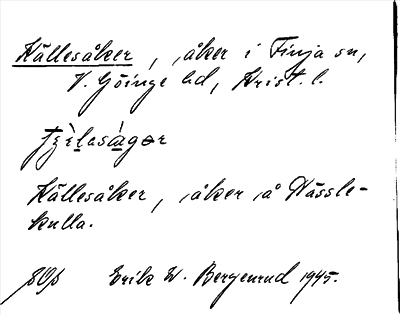 Källesåker, åker i Finja sn,
V. Göinge hd, Krist. l.
Källesåker, åker å Hässle-
kulla.
Erik W. Bergenrud 1945.